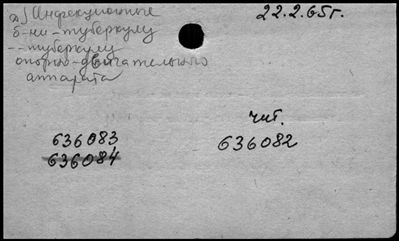 д) Инфекционные
б-ни - туберкулу
-- туберкулу
опорно-двигательного
аппарата
22.2.65г.
636083
636084
чит.
636082